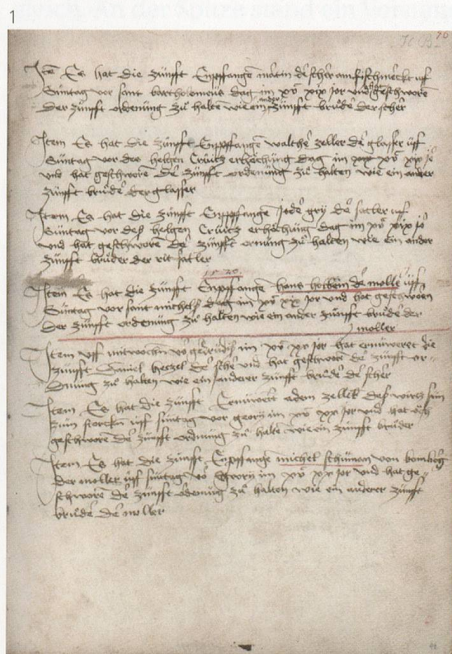 1
20
Item Es hat die zunfft Enpffange martin de scher am fischmerckt uf
Suntag vor sant bartholomeus dag im xv xix jor und geschwore
Der zunfft ordenung zu halte wie ein ander zunfft brude der scher
Item Es hat die zunfft Enpffange walthe zeller de glasser uf
Suntag vor des helgen Crutz erhöchung dag im xv xix jo
und hat geschwore de zunfft ordenung zu halten wie ein ander
zunfft brude der glasser
Item Es hat die zunfft Enpffange de satler uf
Suntag vor des helgen Crutz erhöchung dag im xv xix jo
und hat geschwore de zunfft ornung zu halten wie ein ander
zunfft bruder der satler
1520
Item Es hat die zunfft Enpffange hans holbein de moller uff
Suntag vor sant michels dag im xv xix jor und hat geschworen
Der zunfft ordenung zu halten wie ein ander zunfft brude der
moller
Item uff mitwochen im xv xx jor hat ernuweret die
zunfft Daniel de sche und hat geschwore de zunfft or-
dnung zu halten wie ein anderer zunfft brude de scher
Item Es hat die zunfft Ernuwert adem zeller des wirtz sun
zum storcken uff suntag vor georii im xv xx jor und hat och
geschwore de zunfft ordnung zu halte wie ein zunfft bruder
Item Es hat die zunfft Enpffange michel schuman von
der moller uff suntag vo georii im xv xx jor und hat ge-
schwore de zunfft ordenung zu halten wie ein anderer zunfft
brude de moller